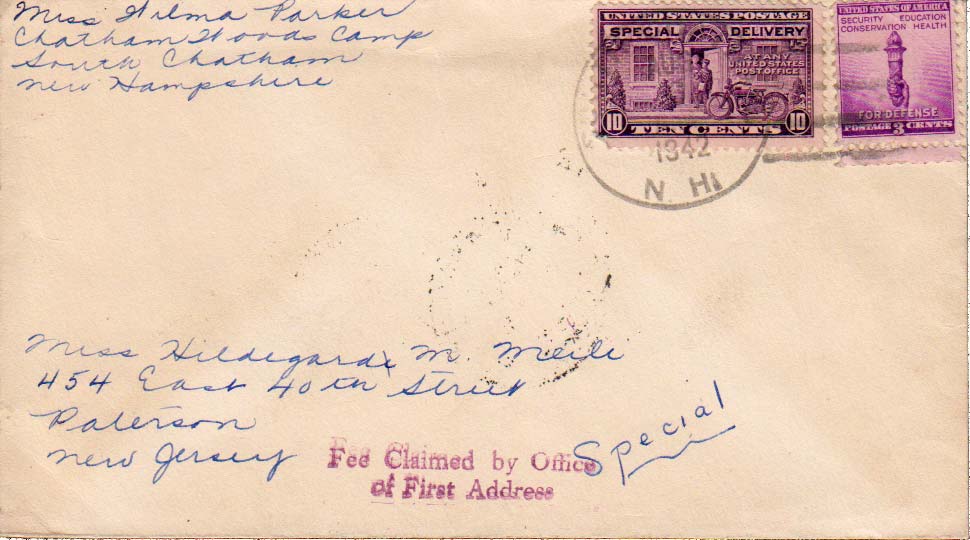 Miss Wilma Parker
Chatham Woods Camp
South Chatham
New Hampshire
UNITED STATES POSTAGE
SPECIAL DELIVERY
AT ANY
UNITED STATES
POST OFFICE
10 TEN CENTS 10
UNITED STATES OF AMERICA
SECURITY EDUCATION
CONSERVATION HEALTH
FOR DEFENSE
POSTAGE 3 CENTS
1942
N. H.
Miss Hildegarde M. Meili
454 East 40th Street
Paterson
New Jersey
Special
Fee Claimed by Office
of First Address